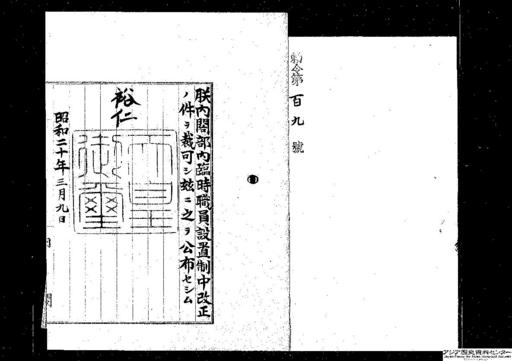 勅令第百九號
朕內閣部內臨時職員設置制中改正
ノ件ヲ裁可シ玆ニ之ヲ公布セシム
裕仁
天皇御璽
昭和二十年三月九日
アジア歴史資料センター